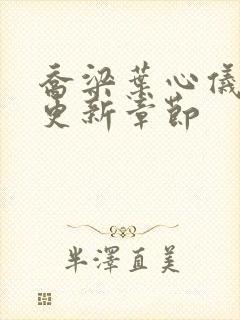 乔梁葉心儀
更新章節
半澤直美